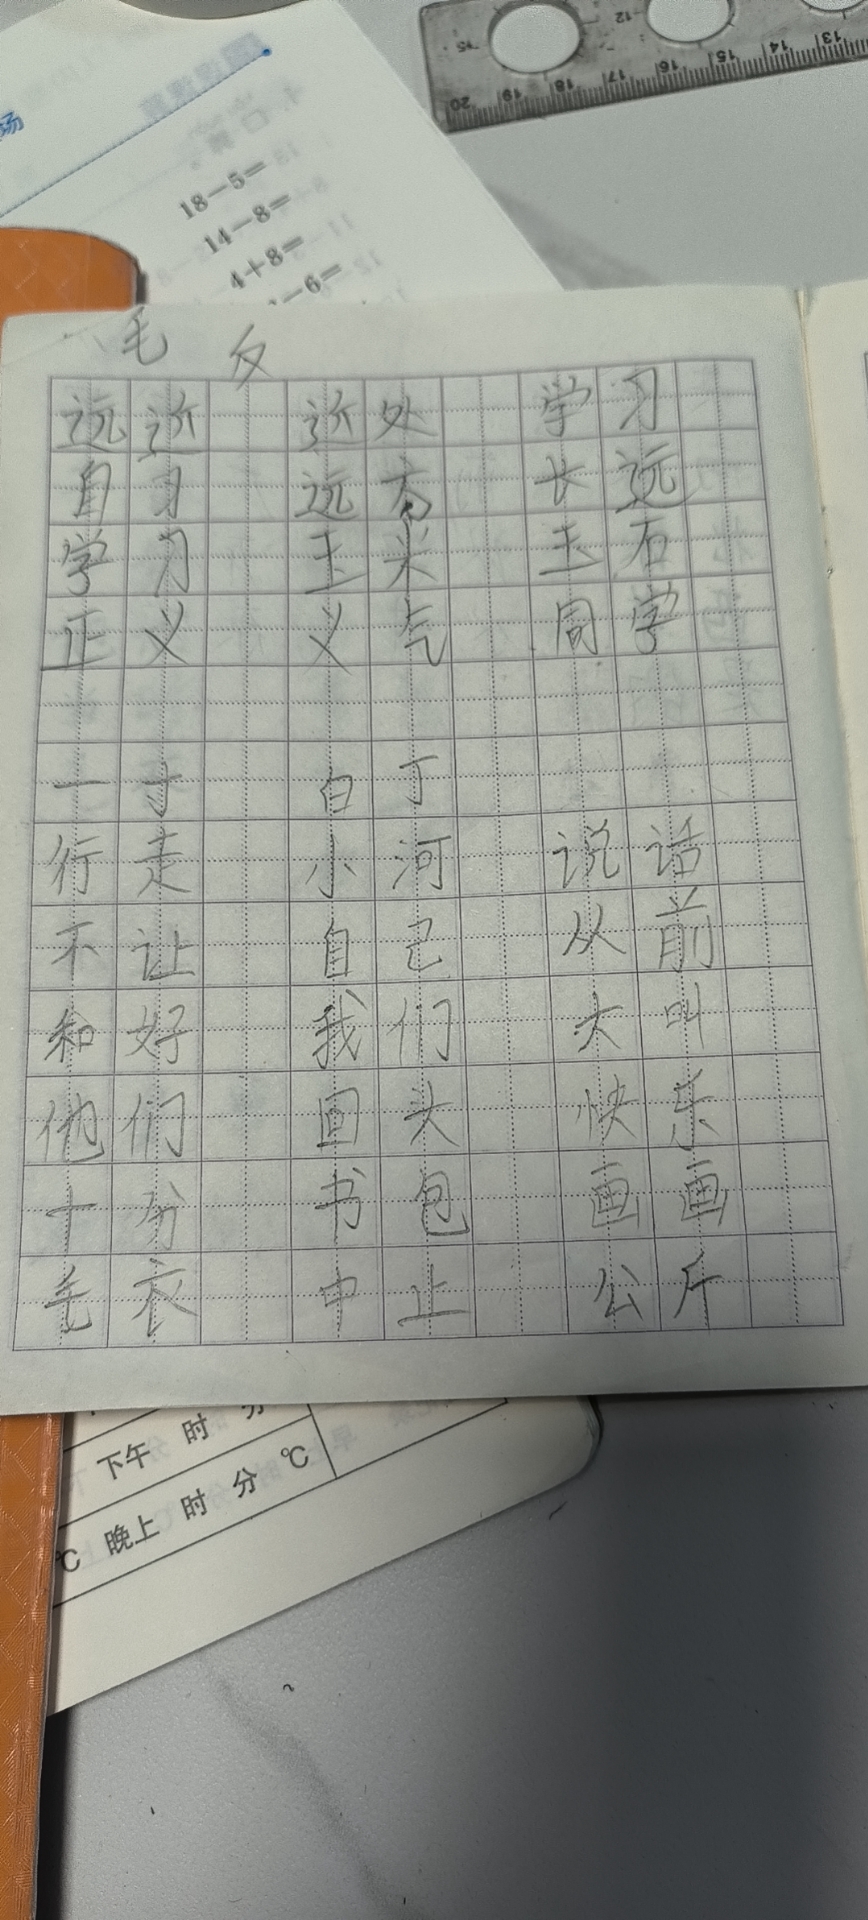 场
18-5=
14-8=
4+8=
-6=
20 19 18 17 16 15 14 13
毛 反
远近 近处 学习
自习 远高 长远
学习 玉米 玉石
正义 义气 同学
一寸 白丁
行走 小河 说话
不让 自己 从前
和好 我们 大叫
他们 回头 快乐
十分 书包 画画
毛衣 中止 公斤
下午 时 分
℃ 晚上 时 分 ℃